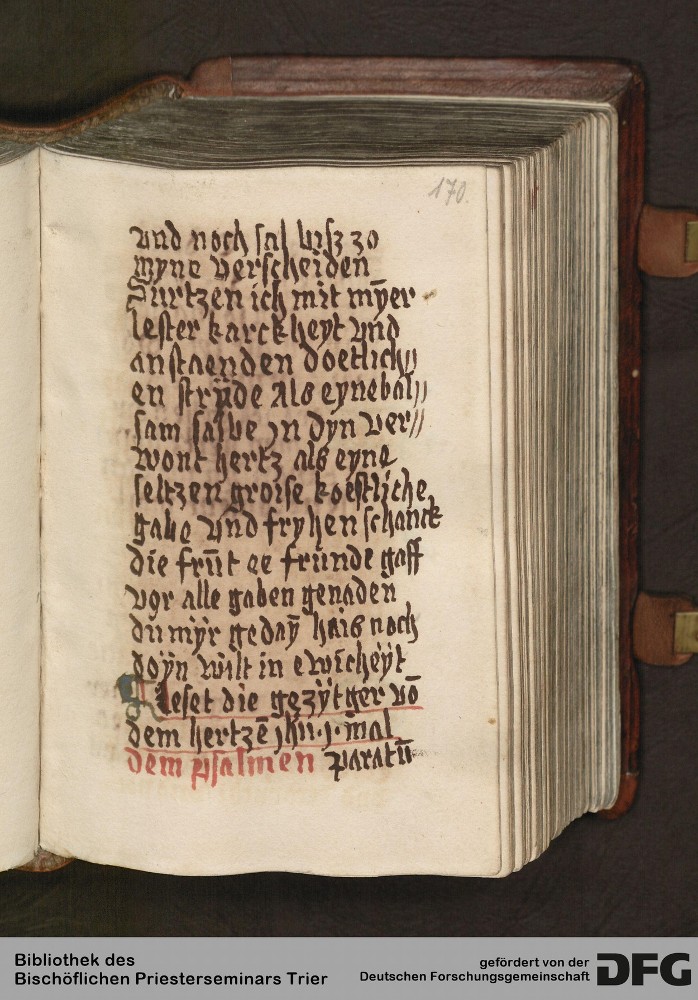 170.
vnd noch sal bisz zo
myne verscheiden
Surtzen ich mit mÿer
lester karckheyt vnd
anstaenden doetlich//
en strÿde Als eyne bal//
sam salbe jn dyn ver//
wont hertz als eyne
seltzen groise koestliche
gabe vnd fryhen schanck
die frūt ee frunde gaff
vor alle gaben genaden
du mÿr gedaȳ hais noch
doÿn wilt in ewicheÿt
leset die gezÿtger vō
dem hertzē jhu . j . māl
dem psalmen paratū
Bibliothek des
Bischöflichen Priesterseminars Trier
gefördert von der
Deutschen Forschungsgemeinschaft DFG